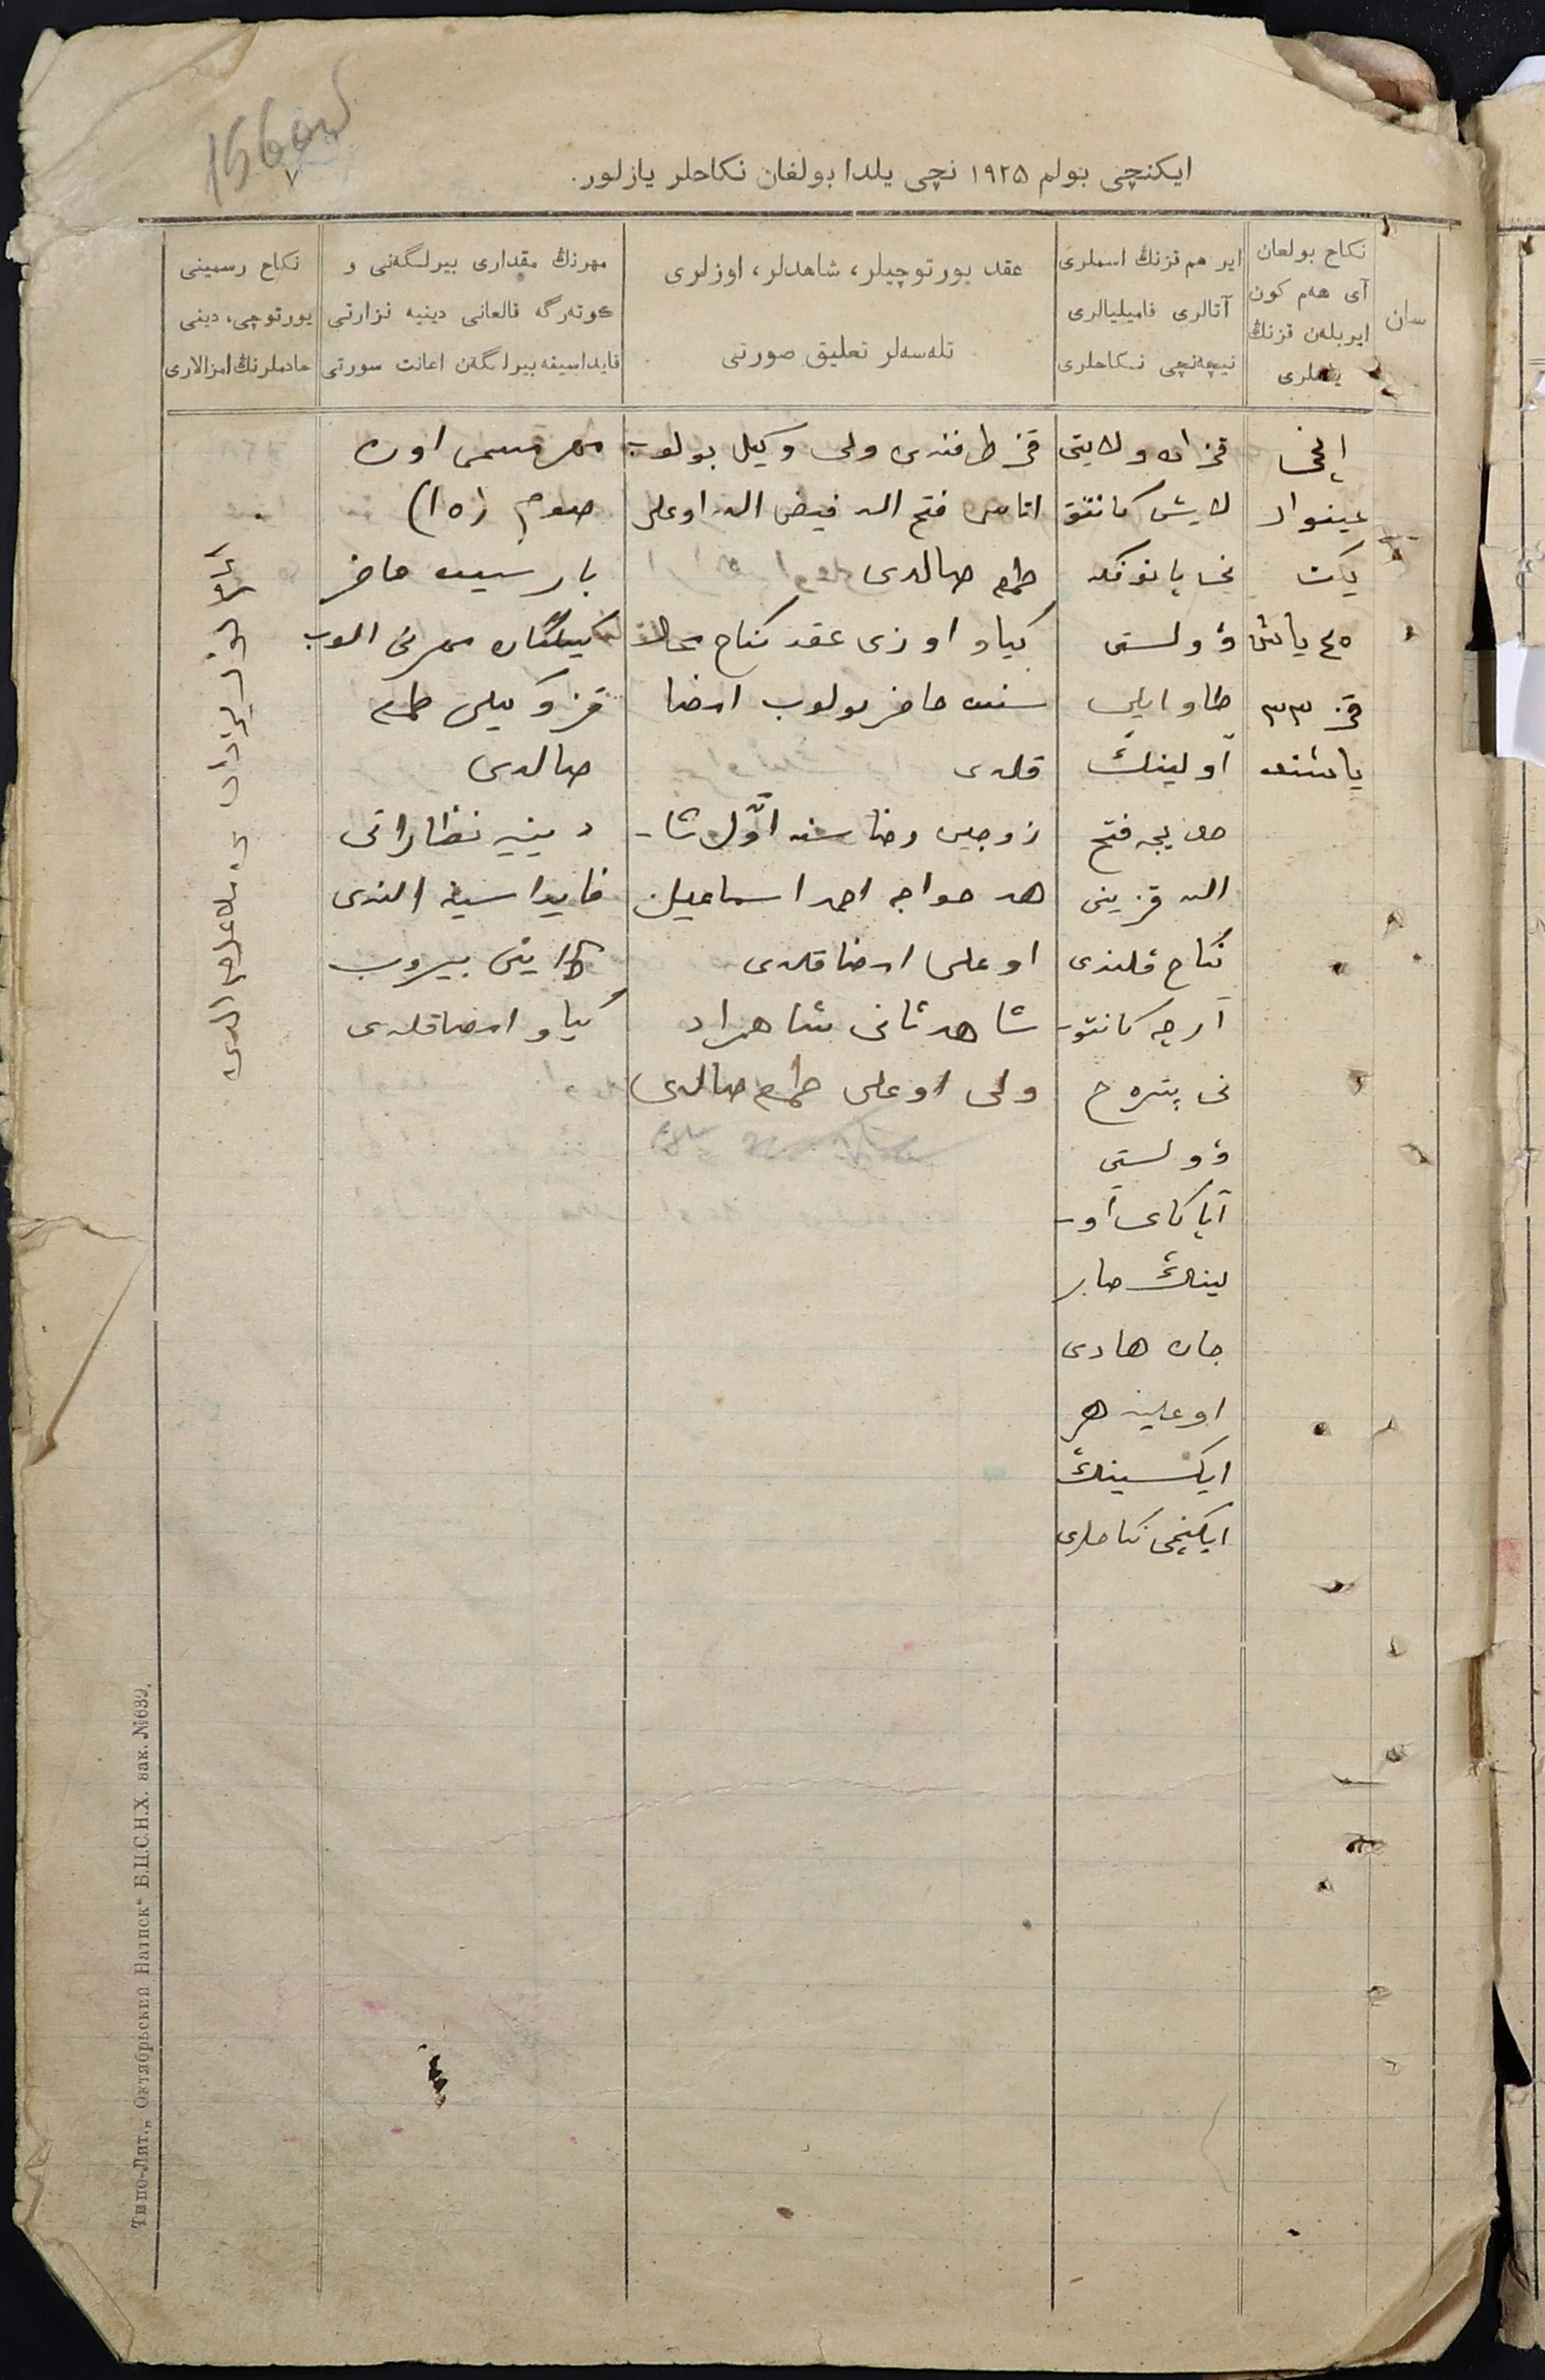 ایکنچی بولم ١٩٢٥ نچی یلدا بولغان نکاحلر یازلور.
سان
نکاح بولغان
آی هەم کون
ایر بلەن قزنڭ
یاشلری
ایر هم قزنڭ اسملری
آتالری فامیلیالری
نیچەنچی نکاحلری
عقد یورتوچیلر، شاهدلر، اوزلری
تلەسەلر تعلیق صورتی
مهرنڭ مقداری بیرلگەنی و
کوتەرگە قالغانی دینیە نزارتی
فایداسینە بیرلگەن اعانت سورتی
نکاح رسمینی
یورتوچی، دینی
خادملرنڭ امزالاری
غینوار
یکت
٤٥ یاش
قز ٣٣
یاشنده
قزان ولایتی
لایش کانتۇن
ۋولستی
طاو ایلی
آولینڭ
خدیجه فتح
الله قزینی
نکاح قلندی
آرچه کانتو-
نی
ۋولستی
آو-
لینڭ صابر
جان هادی
اوغلینه هر
ایکسینڭ
ایکنچی نکاحلری
قز طرفندن ولی وکیل بولوب
اتاسی فتح الله فیض الله اوغلی
طمغه صالدی
کیاو اوزی عقد نکاح مجلا
سنده حاضر بولوب امضا
قلدی
زوجین رضاسنه اوّل شا-
هد خواجه احمد اسماعیل
اوغلی امضا قلدی
شاهد ثانی شاهمراد
ولی اوغلی طمغه صالدی
مهر مسمی اون
صوم (١٥)
بارسیده حاضر
مهرنی الوب
قز وکیلی طمغه
صالدی
دینیه نظاراتی
فایداسینه الندی
بیروب
کیاو امضا قلدی
Типо-Лит. „Октябрьский Натиск“ Б.Ц.С.Н.Х. зак. №639.